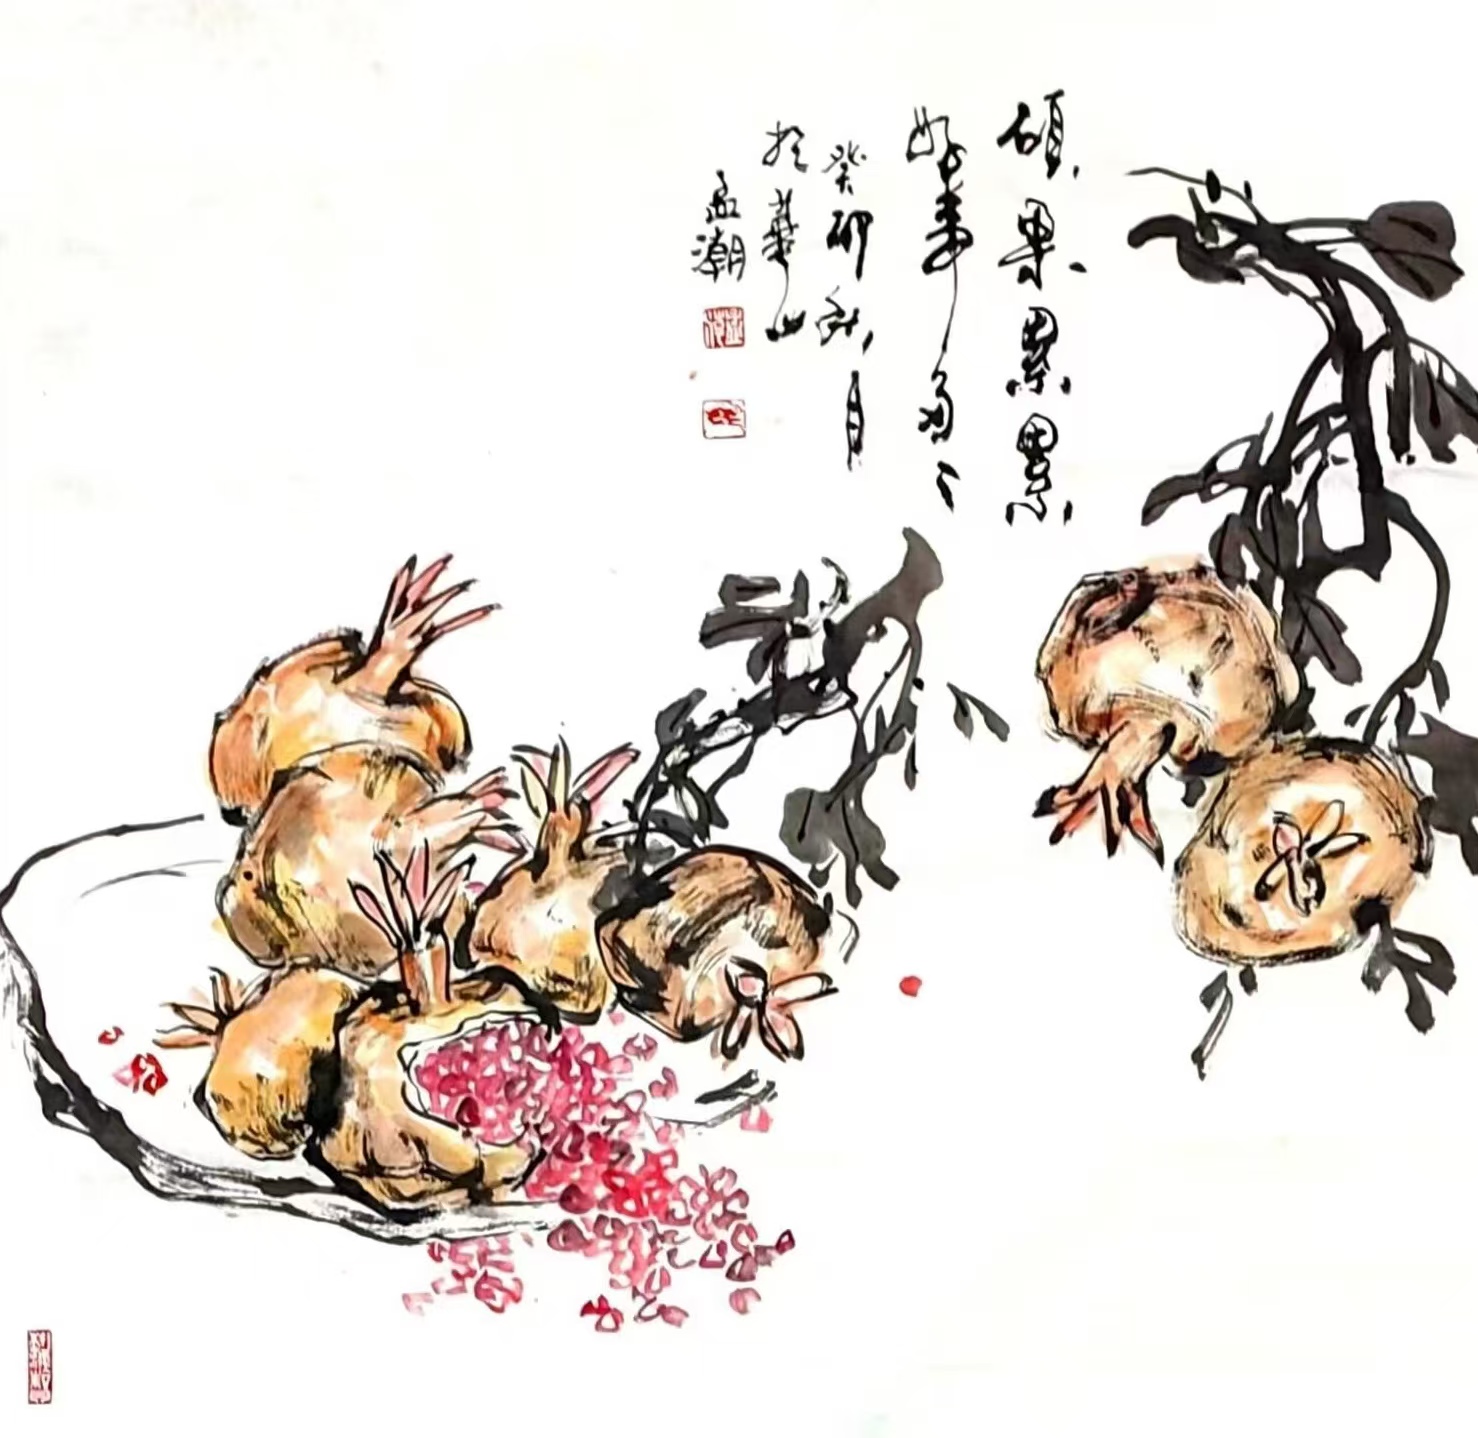 硕果累累
好事多多
癸卯秋月
于华山
孟潮